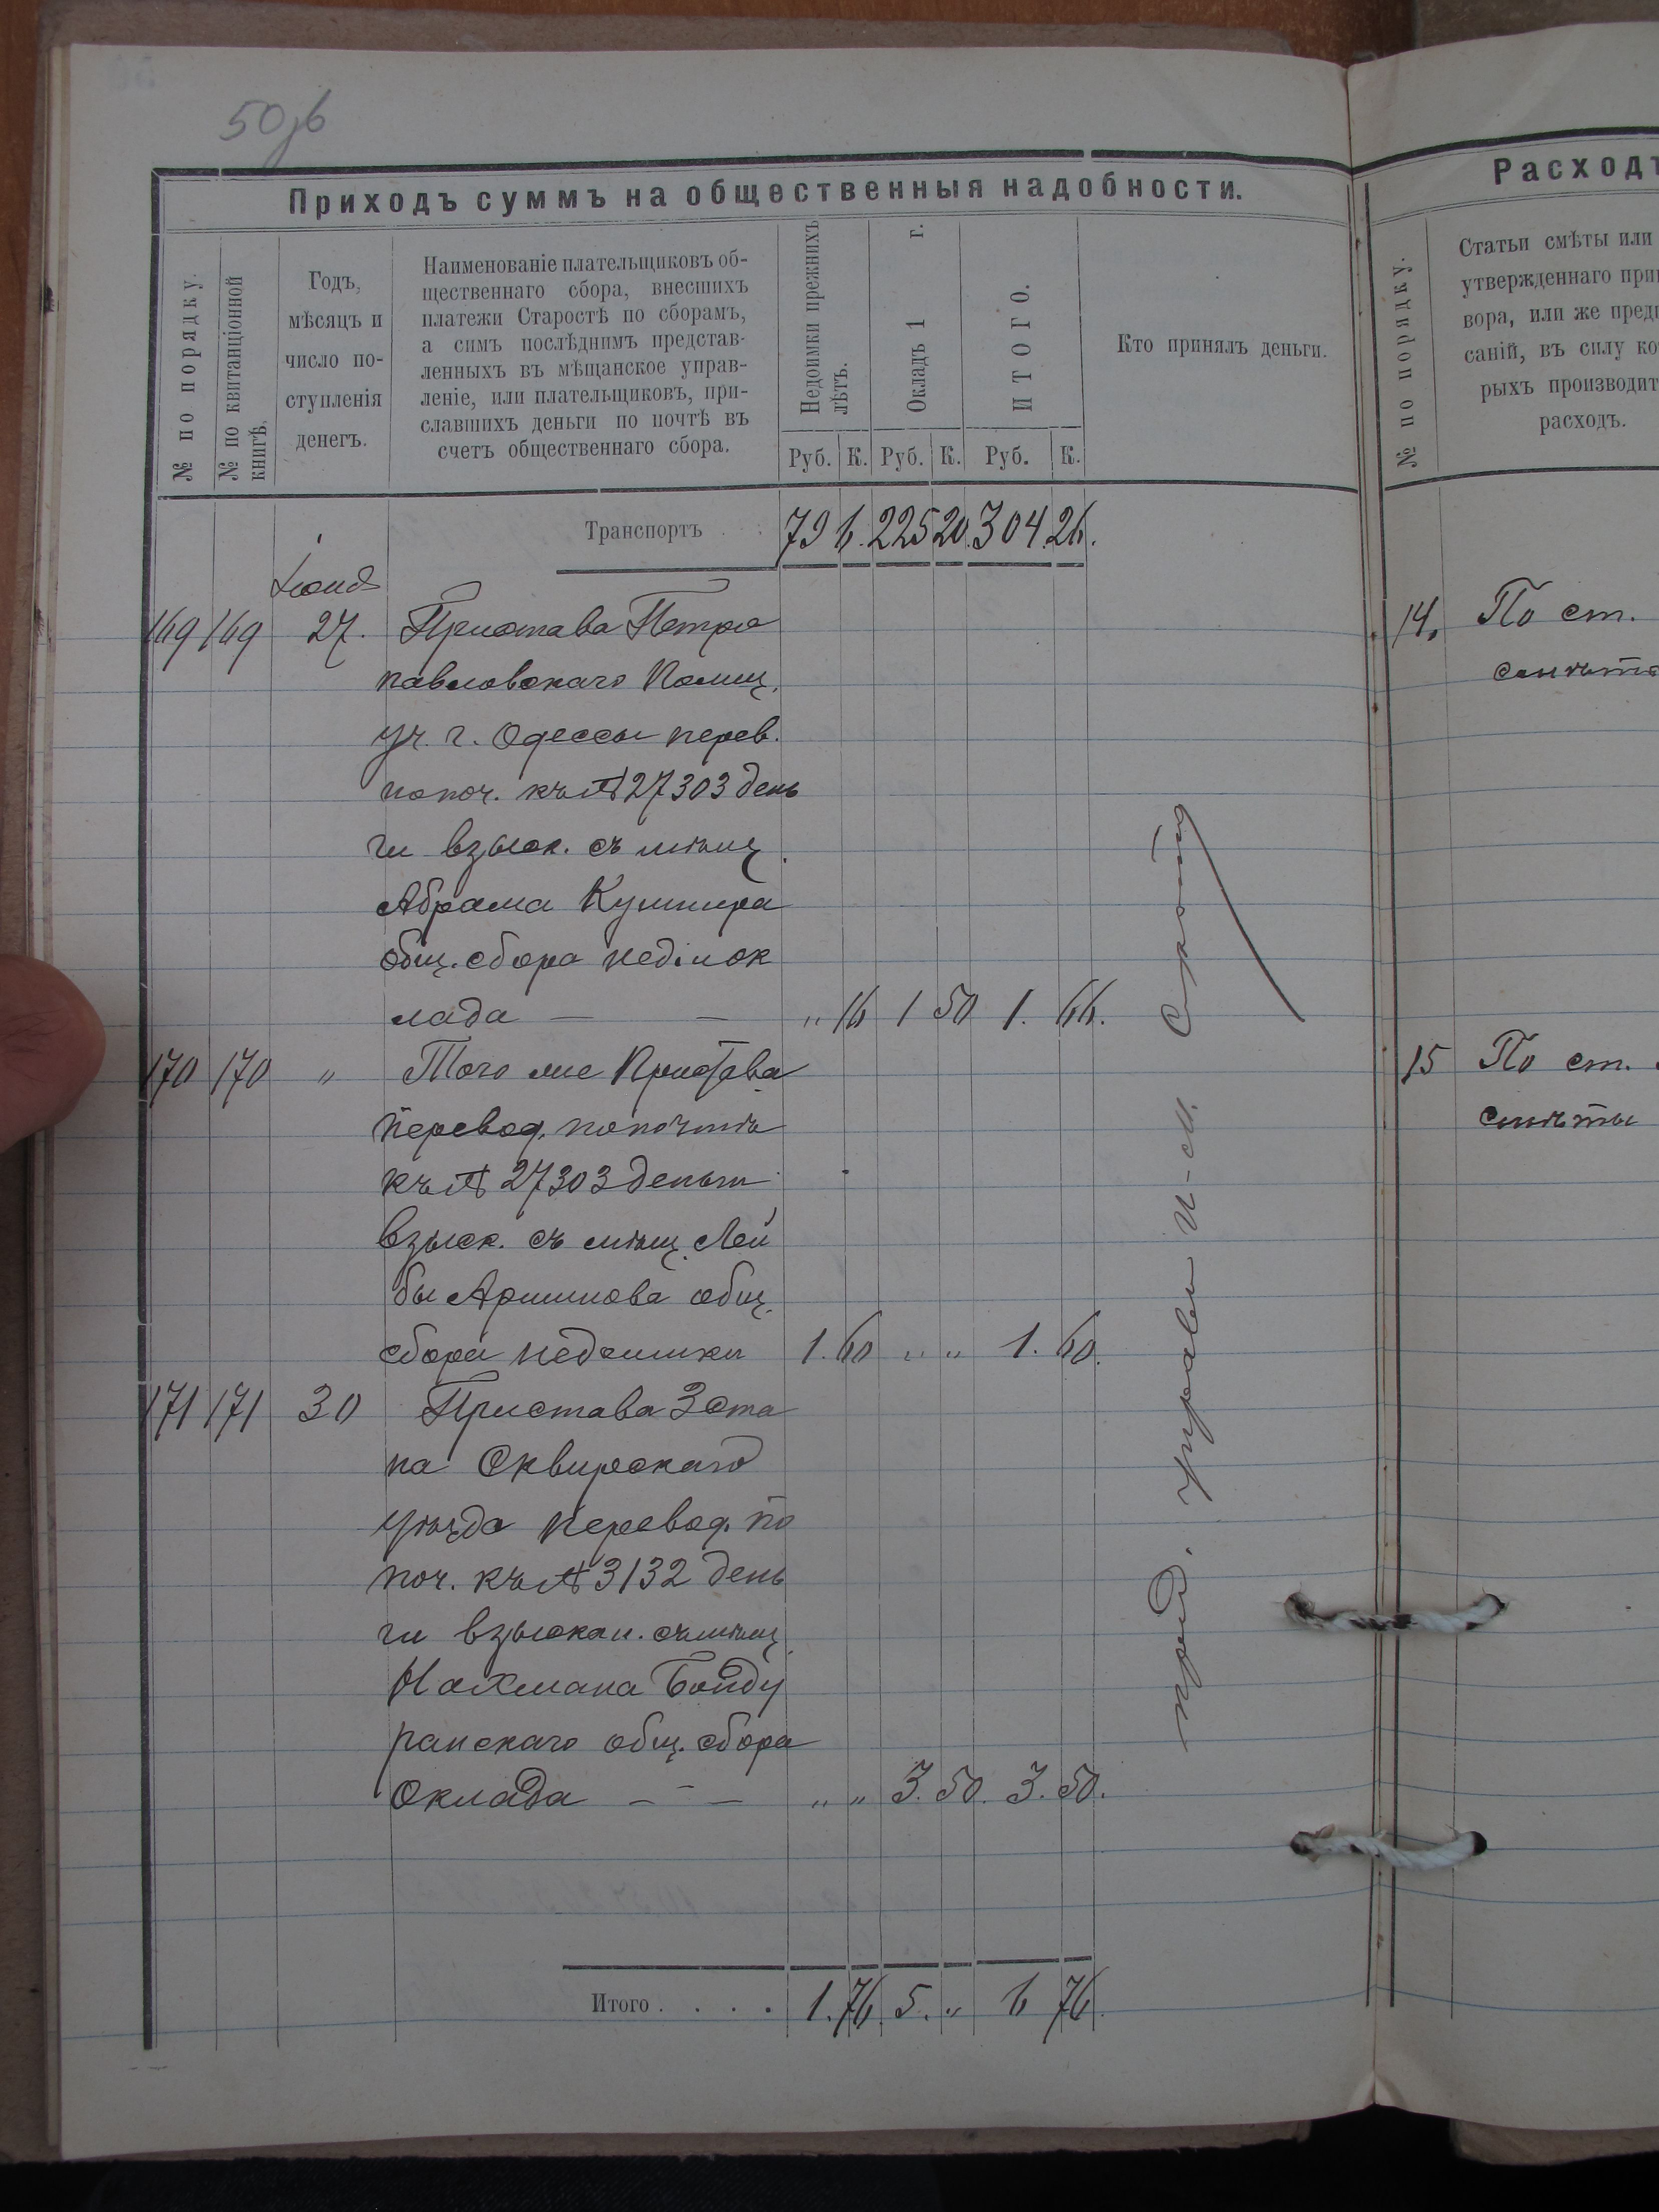 50 об
Приходъ суммъ на общественныя надобности.
№ по порядку.
№ по квитанціонной книгѣ.
Годъ,
мѣсяцъ и
число по-
ступленія
денегъ.
Наименованіе плательщиковъ об-
щественнаго сбора, внесшихъ
платежи Старостѣ по сборамъ,
а симъ послѣднимъ представ-
ленныхъ въ мѣщанское управ-
леніе, или плательщиковъ, при-
славшихъ деньги по почтѣ въ
счетъ общественнаго сбора.
Недоимки прежнихъ лѣтъ.
Окладъ 1 г.
ИТОГО.
Руб. К. Руб. К. Руб. К.
Кто принялъ деньги.
Транспортъ 79 6. 225 20. 304. 26.
Іюнь
169 169 27. Пристава Петро
павловскаго Полиц.
уч. г. Одессы перев.
по поч. къ № 27303 день
ги взыск. съ мѣщ.
Абрама Кушнира
общ. сбора нед. и ок
лада — — " 16 1 50 1. 66.
170 170 " Того же Пристава
перевод. по почтѣ
къ № 27303 деньги
взыск. съ мѣщ. Лей
бы Аршинова общ.
сбора недоимки 1. 60 " " 1. 60.
171 171 30 Пристава 3 ста
на Сквирскаго
уѣзда перевод. по
поч. къ № 3132 день
ги взыскан. съ мѣщ.
Нахмана Бонду
ранскаго общ. сбора
Оклада — — " " 3. 50. 3. 50.
управы И-М.
Итого . . . . 1. 76 5. " 6 76.
Расходъ
№ по порядку.
Статьи смѣты или
утвержденнаго при
вора, или же пред
саній, въ силу ко
рыхъ производит
расходъ.
14. По ст.
15 По ст.
смѣты